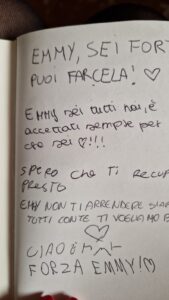 EMMY, SEI FORT
PUOI FARCELA! ♡
EMMY sei tutti noi, è
accettati sempre per
che sei ♡!!!
SPERO CHE TI RECUP
PRESTO
EMMY NON TI ARRENDERE SIAM
TUTTI CONTE TI VOGLIAMO B
♡
CIAO
FORZA EMMY!♡